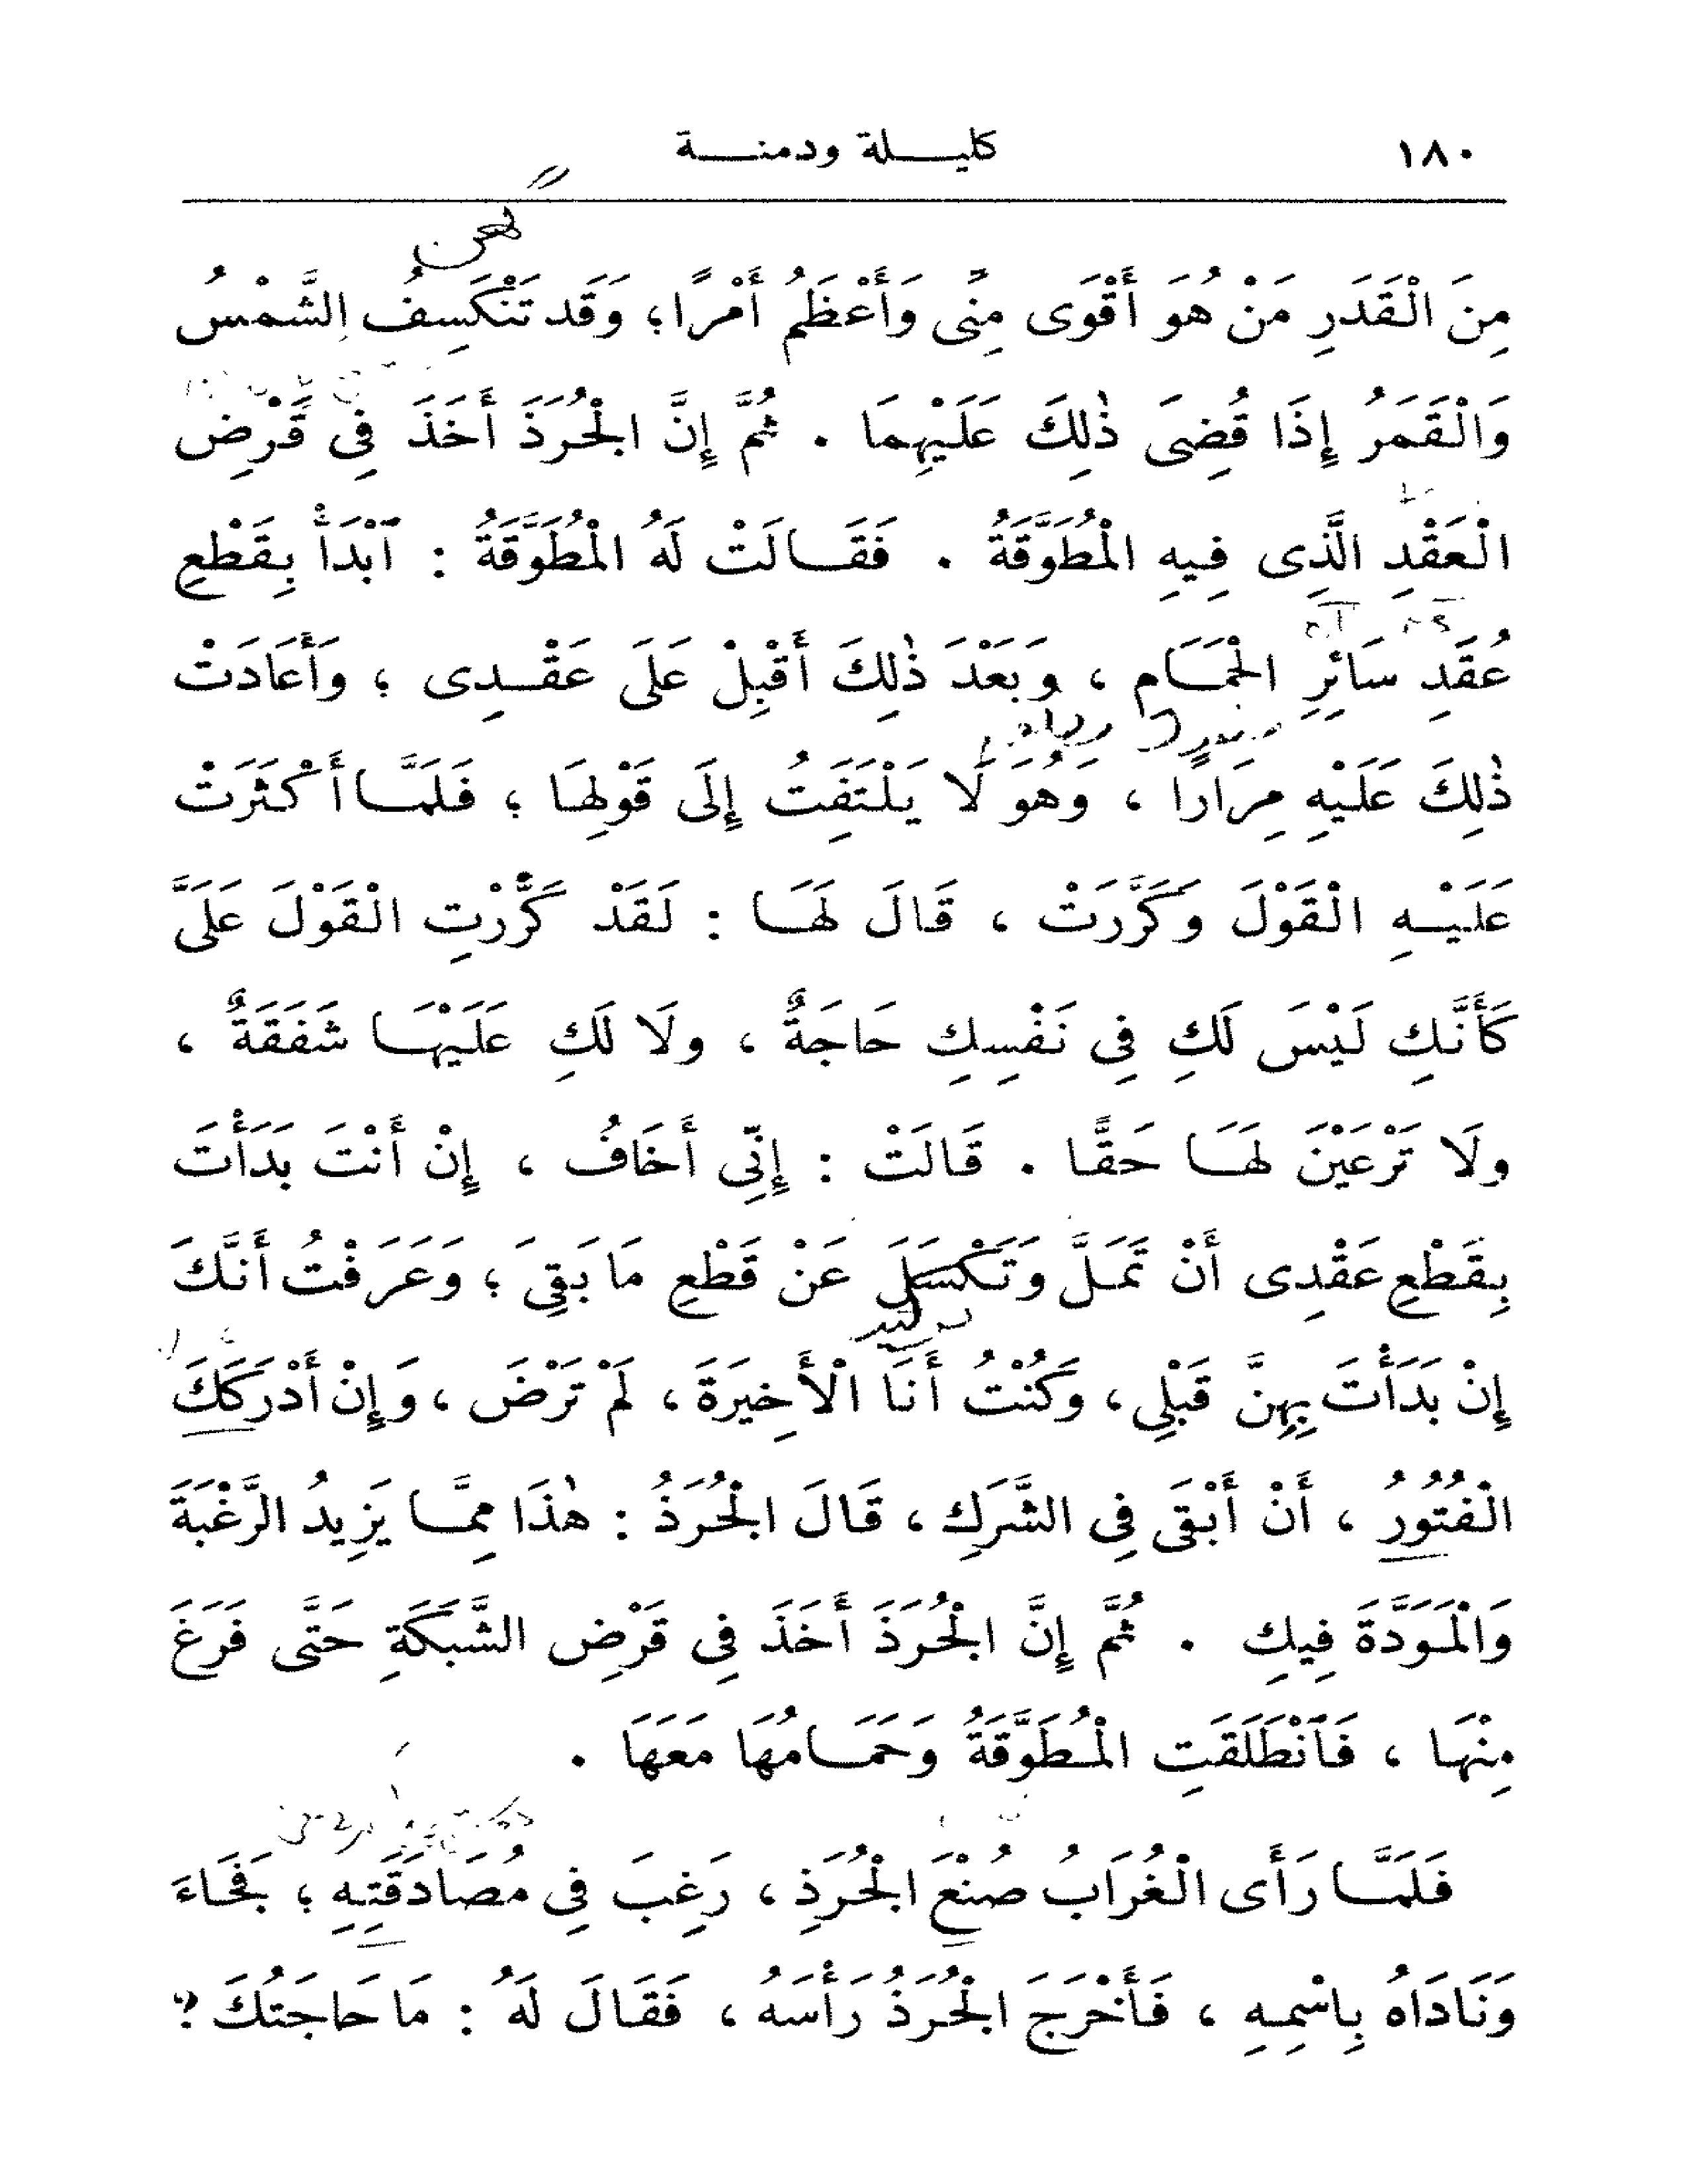 ١٨٠ كليلة ودمنة
مِنَ الْقَدَرِ مَنْ هُوَ أَقْوَى مِنِّى وَأَعْظَمُ أَمْرًا؛ وَقَد تَنْكَسِفُ الشَّمْسُ
وَالْقَمَرُ إِذَا قُضِىَ ذٰلِكَ عَلَيْهِمَا . ثُمَّ إِنَّ الْجُرَذَ أَخَذَ فِى قَرْضِ
الْعَقْدِ الَّذِى فِيهِ الْمُطَوَّقَةُ . فَقَالَتْ لَهُ الْمُطَوَّقَةُ : ٱبْدَأْ بِقَطْعِ
عُقَدِ سَائِرِ الْحَمَامِ ، وَبَعْدَ ذٰلِكَ أَقْبِلْ عَلَى عَقْدِى ؛ وَأَعَادَتْ
ذٰلِكَ عَلَيْهِ مِرَارًا ، وَهُوَ لَا يَلْتَفِتُ إِلَى قَوْلِهَا ؛ فَلَمَّا أَكْثَرَتْ
عَلَيْهِ الْقَوْلَ وَكَرَّرَتْ ، قَالَ لَهَا : لَقَدْ كَرَّرْتِ الْقَوْلَ عَلَىَّ
كَأَنَّكِ لَيْسَ لَكِ فِى نَفْسِكِ حَاجَةٌ ، ولَا لَكِ عَلَيْهَا شَفَقَةٌ ،
ولَا تَرْعَيْنَ لَهَا حَقًّا . قَالَتْ : إِنِّى أَخَافُ ، إِنْ أَنْتَ بَدَأْتَ
بِقَطْعِ عَقْدِى أَنْ تَمَلَّ وَتَكْسَلَ عَنْ قَطْعِ مَا بَقِىَ ؛ وَعَرَفْتُ أَنَّكَ
إِنْ بَدَأْتَ بِهِنَّ قَبْلِى، وَكُنْتُ أَنَا الْأَخِيرَةَ ، لَمْ تَرْضَ ، وَإِنْ أَدْرَكَكَ
الْفُتُورُ ، أَنْ أَبْقَى فِى الشَّرَكِ ، قَالَ الْجُرَذُ : هٰذَا مِمَّا يَزِيدُ الرَّغْبَةَ
وَالْمَوَدَّةَ فِيكِ . ثُمَّ إِنَّ الْجُرَذَ أَخَذَ فِى قَرْضِ الشَّبَكَةِ حَتَّى فَرَغَ
مِنْهَا ، فَٱنْطَلَقَتِ الْمُطَوَّقَةُ وَحَمَامُهَا مَعَهَا .
فَلَمَّا رَأَى الْغُرَابُ صُنْعَ الْجُرَذِ ، رَغِبَ فِى مُصَادَقَتِهِ ؛ فَجَاءَ
وَنَادَاهُ بِاسْمِهِ ، فَأَخْرَجَ الْجُرَذُ رَأْسَهُ ، فَقَالَ لَهُ : مَا حَاجَتُكَ ؟